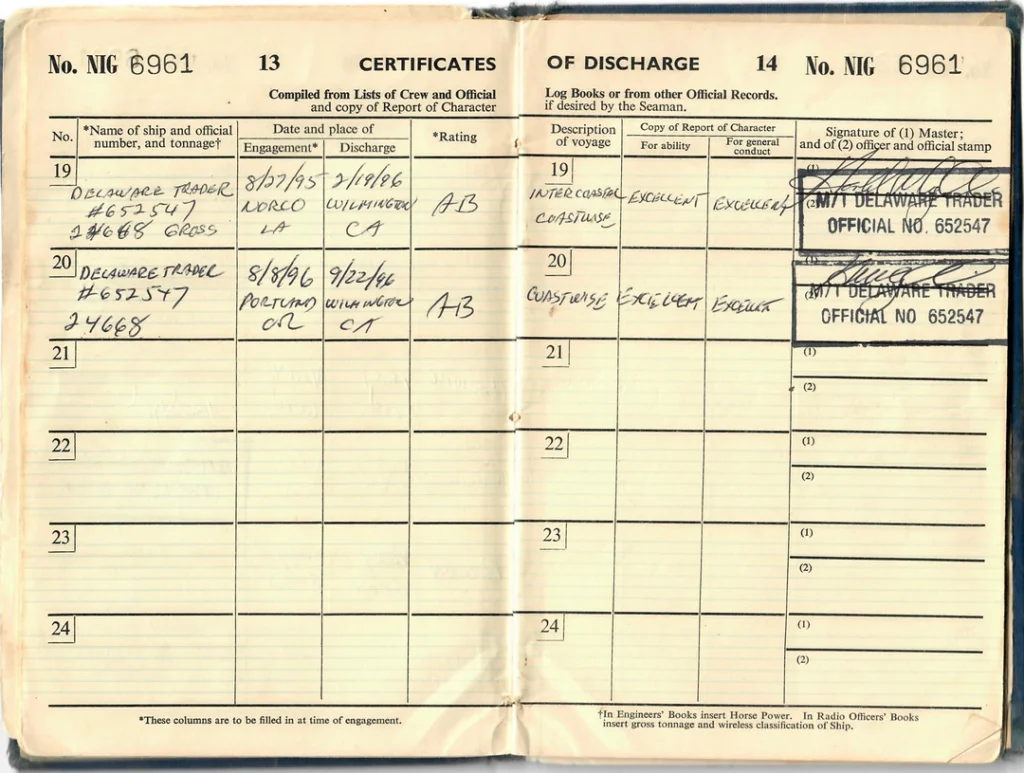 No. NIG 6961 13 CERTIFICATES
Compiled from Lists of Crew and Official
and copy of Report of Character
No. *Name of ship and official number, and tonnage† Date and place of *Rating
Engagement* Discharge
19 DELAWARE TRADER 8/27/95 2/19/96 AB
#652547 NORCO WILMINGTON
24668 GROSS LA CA
20 DELAWARE TRADER 8/8/96 9/22/96 AB
#652547 PORTLAND WILMINGTON
24668 OR CA
21
22
23
24
*These columns are to be filled in at time of engagement.
OF DISCHARGE 14 No. NIG 6961
Log Books or from other Official Records.
if desired by the Seaman.
Description of voyage Copy of Report of Character Signature of (1) Master; and of (2) officer and official stamp
For ability For general conduct
19 (1)
INTERCOASTAL EXCELLENT EXCELLENT (2) M/T DELAWARE TRADER
COASTWISE OFFICIAL NO. 652547
20 (1)
COASTWISE EXCELLENT EXCELLENT (2) M/T DELAWARE TRADER
OFFICIAL NO 652547
21 (1)
(2)
22 (1)
(2)
23 (1)
(2)
24 (1)
(2)
†In Engineers' Books insert Horse Power. In Radio Officers' Books
insert gross tonnage and wireless classification of Ship.